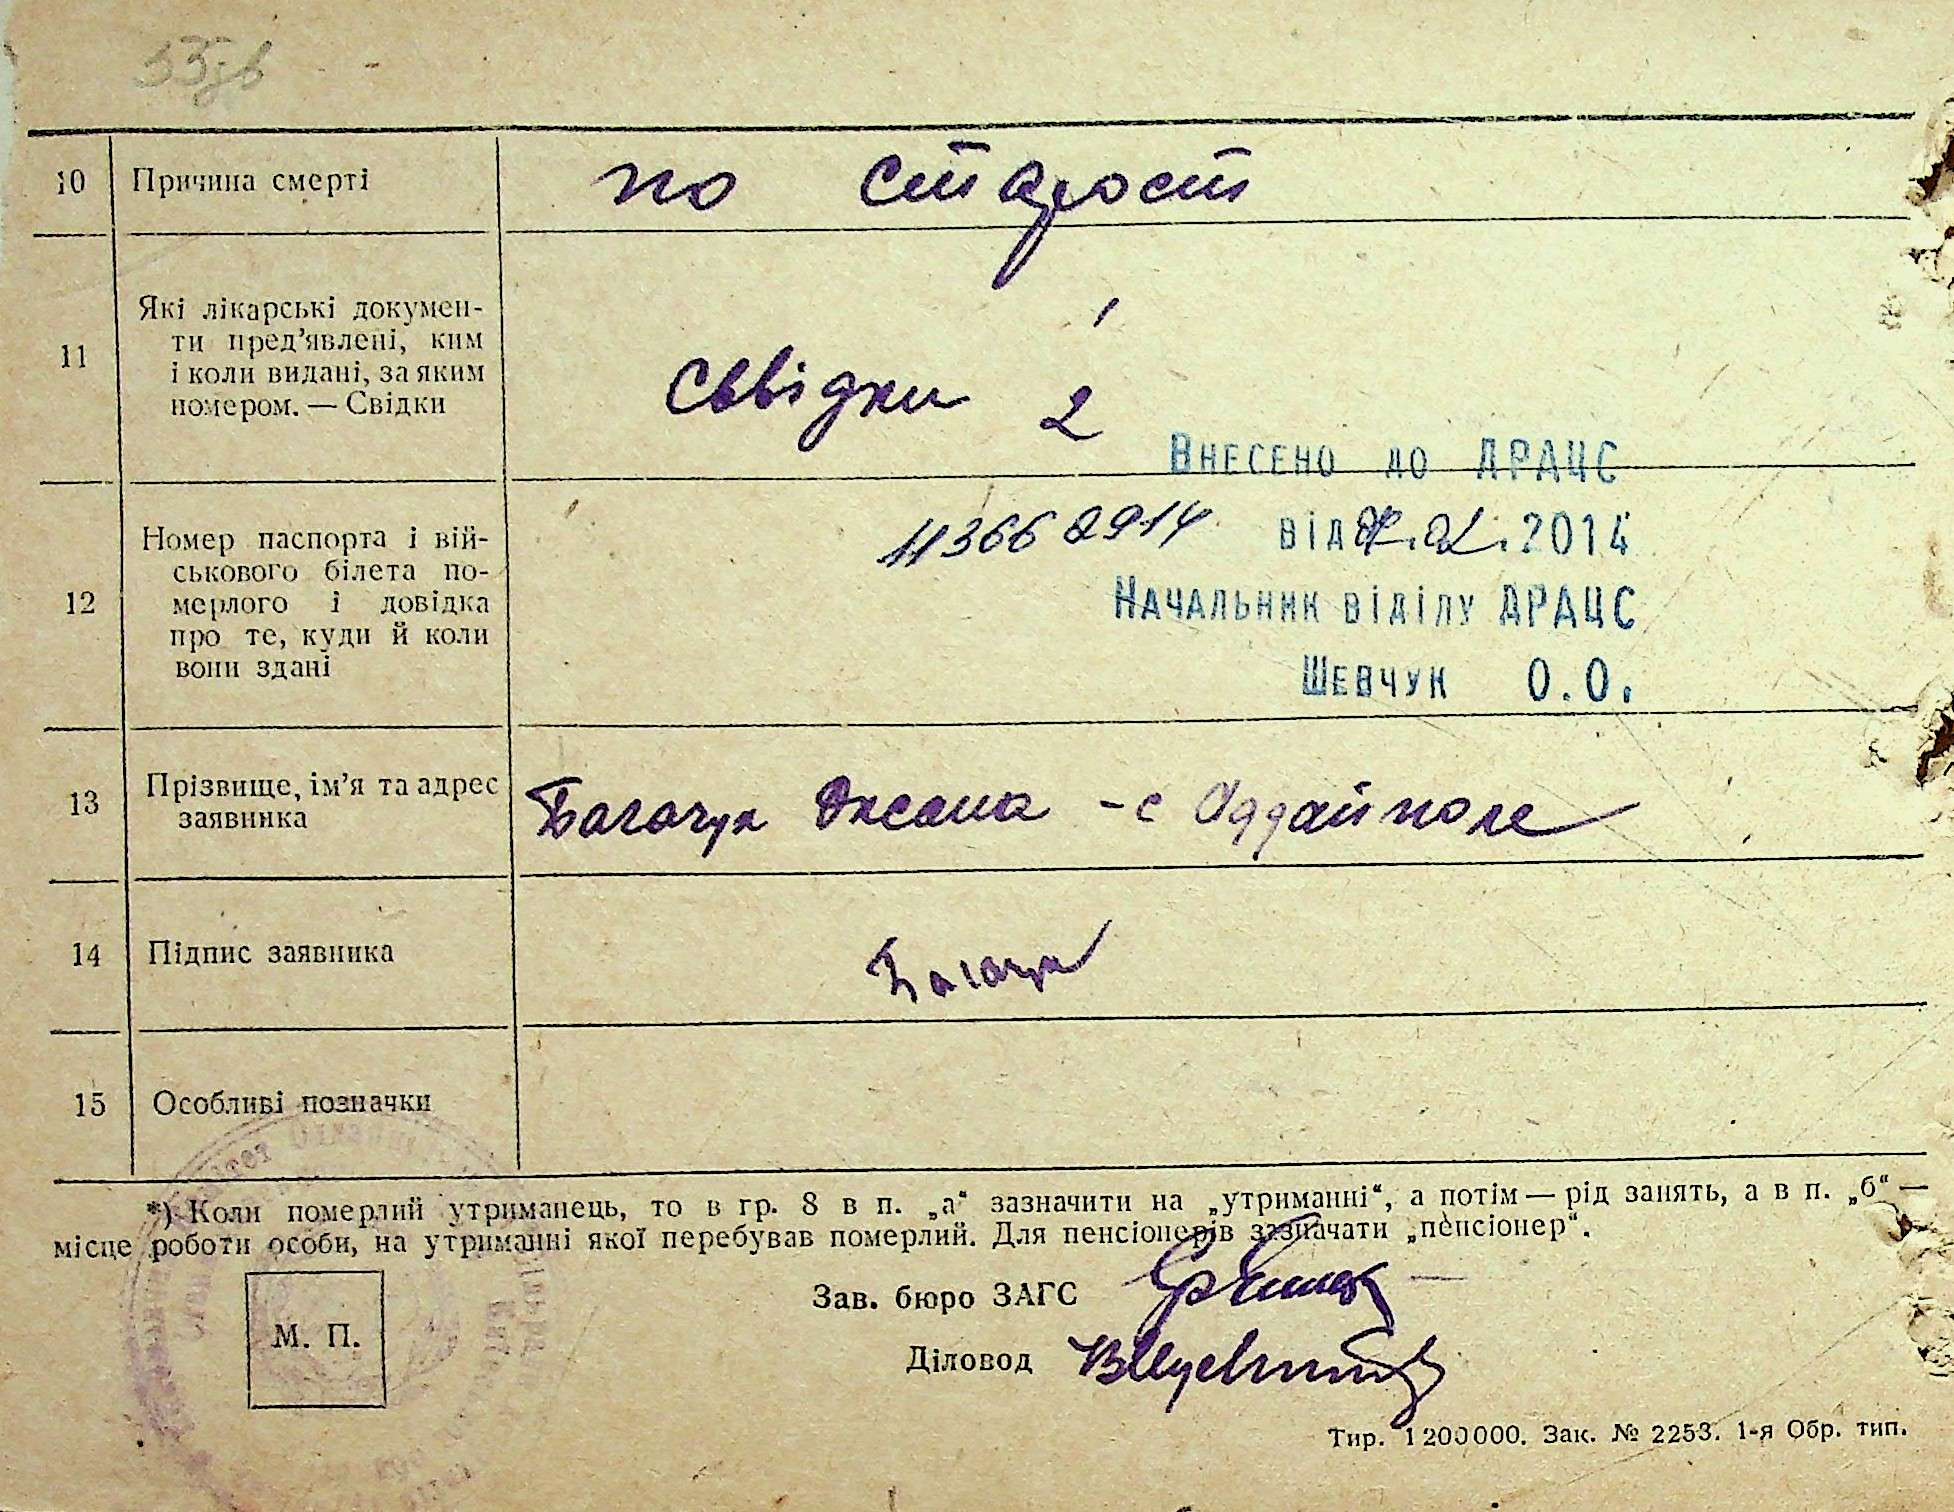 10 Причина смерті по старост
11 Які лікарські докумен-
ти пред’явлені, ким
і коли видані, за яким
номером. — Свідки
Свідки 2
Внесено до ДРАЦС
від 2014
Начальник відділу ДРАЦС
Шевчук О.О.
12 Номер паспорта і вій-
ськового білета по-
мерлого і довідка
про те, куди й коли
вони здані
13 Прізвище, ім’я та адрес
заявника
Багачук Оксана - с Оддайполе
14 Підпис заявника Багачук
15 Особливі позначки
*) Коли померлий утриманець, то в гр. 8 в п. „а“ зазначити на „утриманні“, а потім — рід занять, а в п. „б“ —
місце роботи особи, на утриманні якої перебував померлий. Для пенсіонерів зазначати „пенсіонер“.
М. П.
Зав. бюро ЗАГС
Діловод
Тир. 1200000. Зак. № 2253. 1-я Обр. тип.